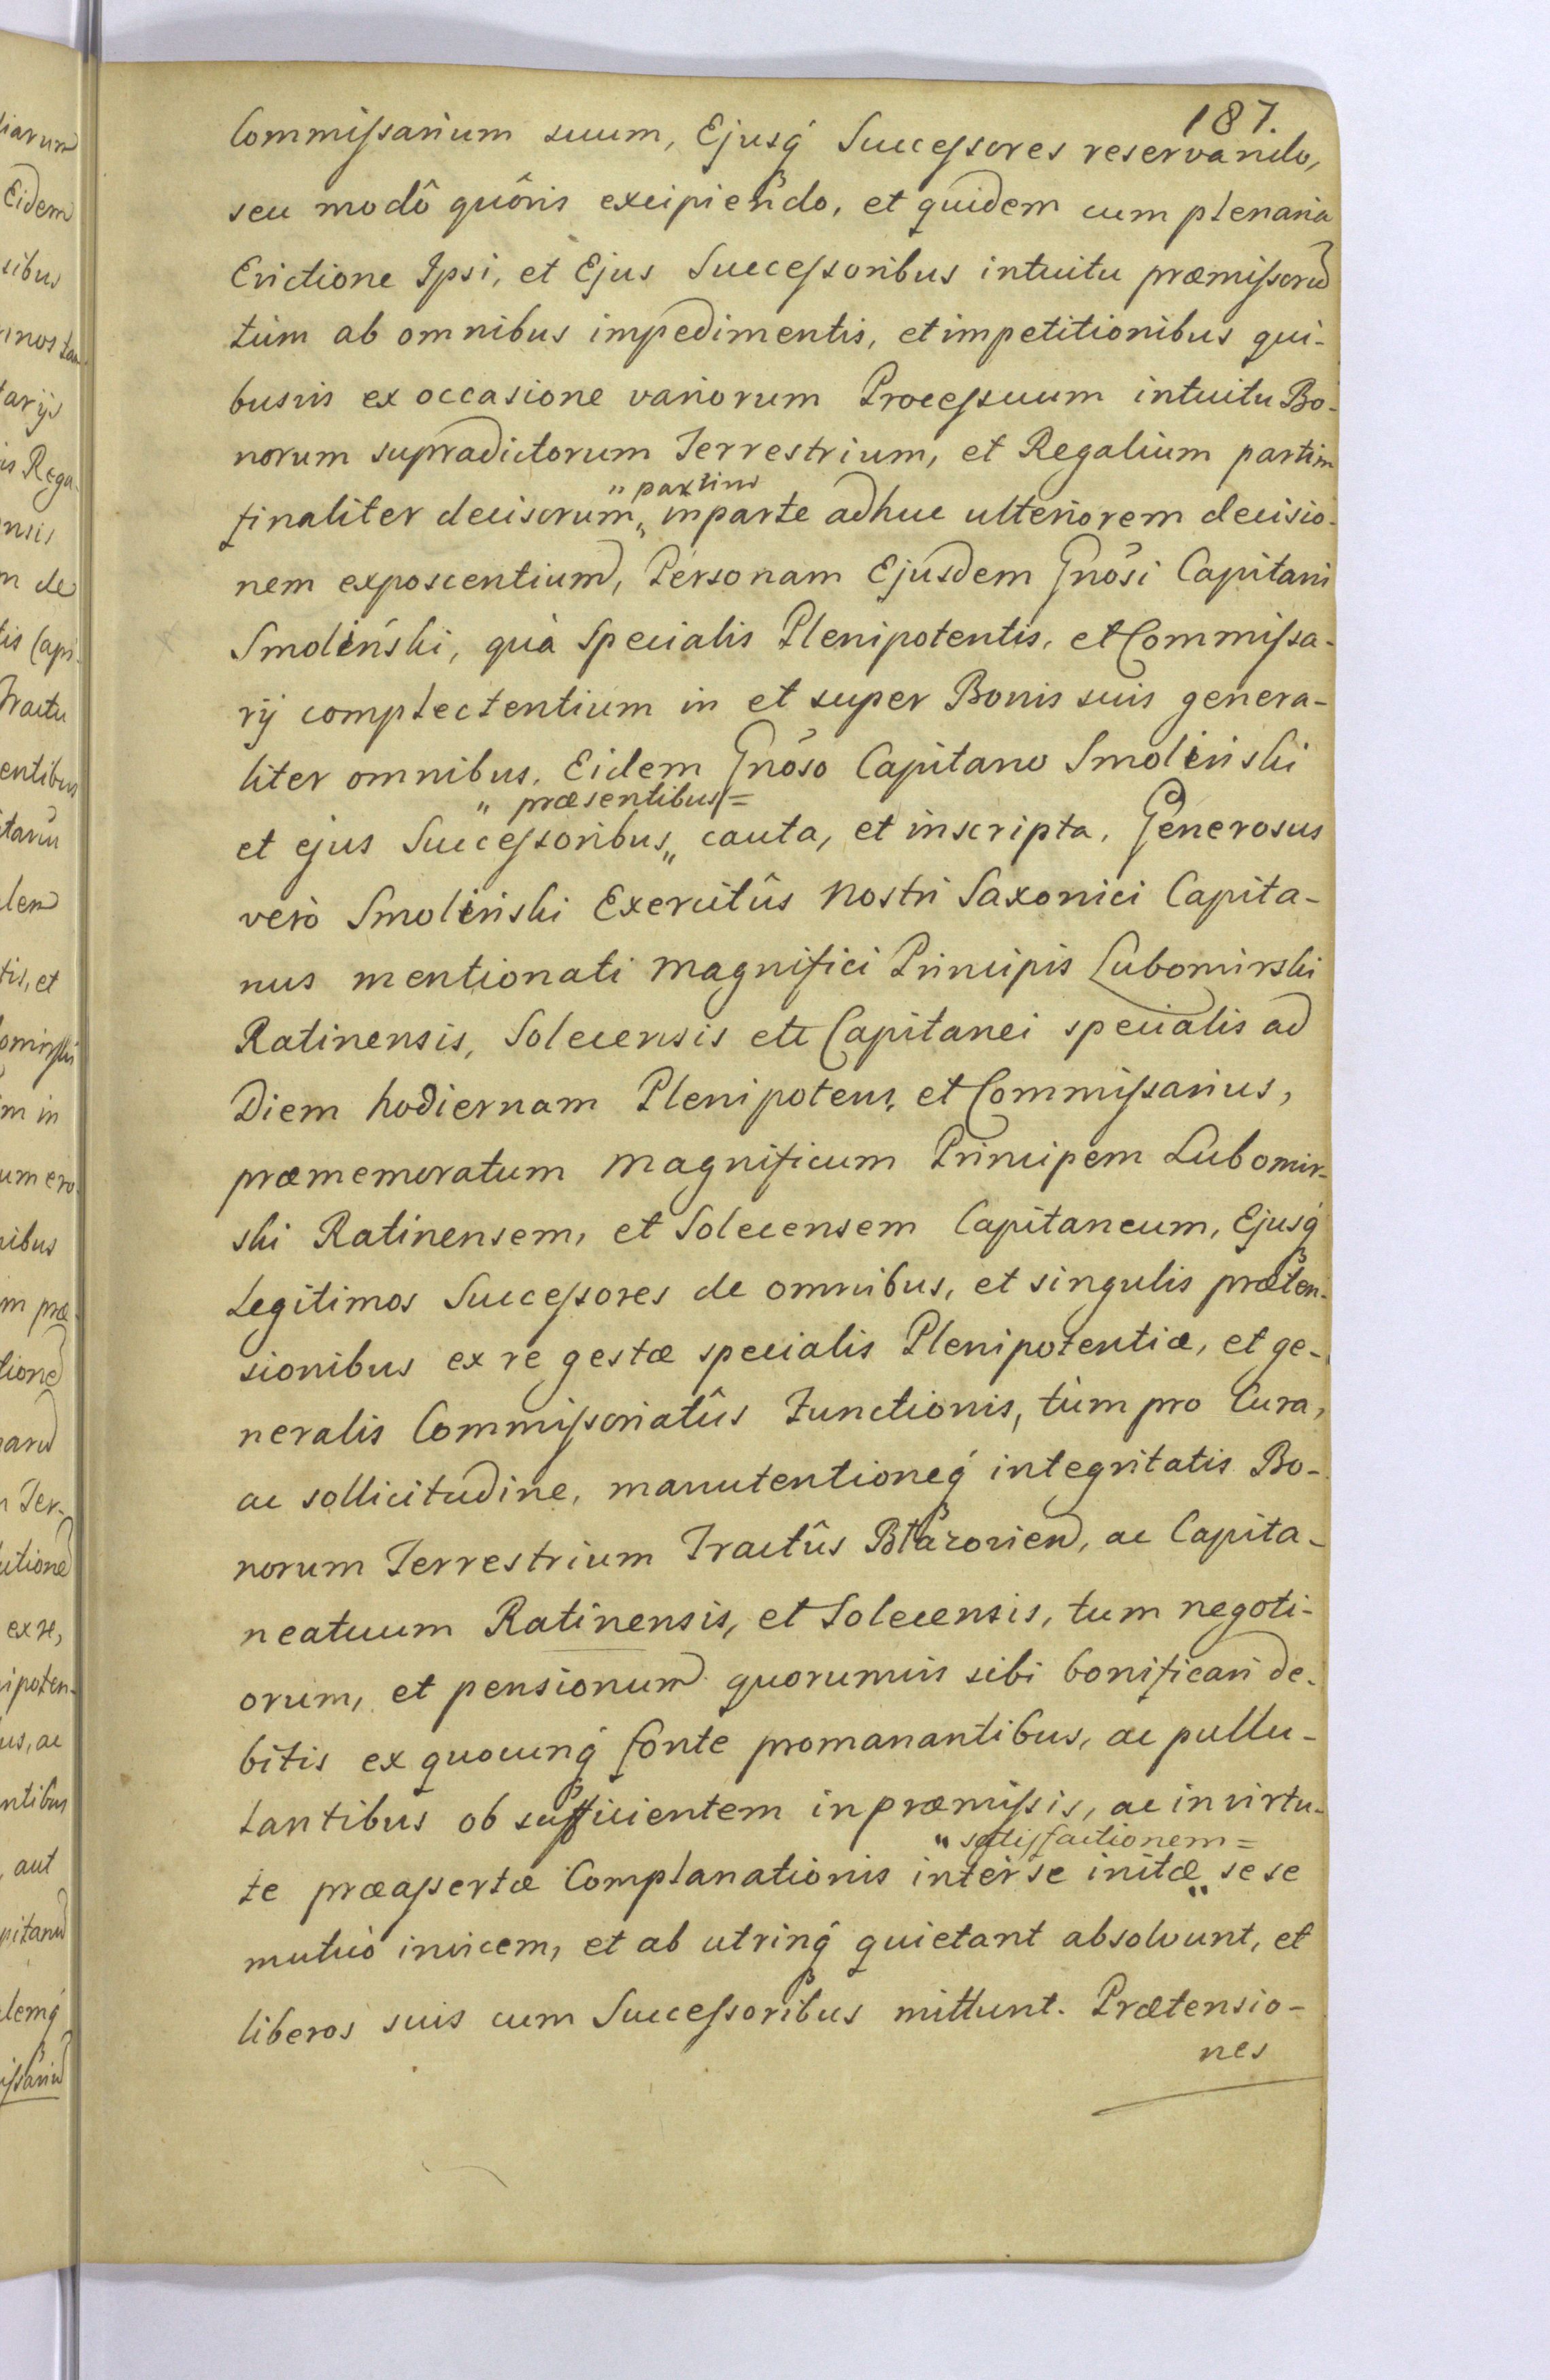 187.
Commiſsarium suum, Ejusq́ Succeſsores reservando,
seu modô quôvis excipiendo, et quidem cum plenaria
Evictione Ipsi, et Ejus Succeſsoribus intuitu præmiſsorũ
tùm ab omnibus impedimentis, et impetitionibus qui-
busvis ex occasione variorum Proceſsuum intuitu Bo-
norum supradictorum Terrestrium, et Regalium partim
„ partim
finaliter decisorum „ in parte adhuc ulteriorem decisio-
nem exposcentium, Personam Ejusdem Gnõsi Capitani
Smoliński, quà Specialis Plenipotentis, et Commiſsa-
rij complectentium in et super Bonis suis genera-
liter omnibus. Eidem Gnõso Capitano Smoliński
„ præsentibus =
et ejus Succeſsoribus „ cauta, et inscripta. Generosus
verò Smoliński Exercitûs Nostri Saxonici Capita-
nus mentionati Magnifici Principis Lubomirski
Ratinensis, Solecensis etc Capitanei specialis ad
Diem hodiernam Plenipotens, et Commiſsarius,
præmemoratum Magnificum Principem Lubomir-
ski Ratinensem, et Solecensem Capitaneum, Ejusq́
Legitimos Succeſsores de omnibus, et singulis præten-
sionibus ex re gestæ specialis Plenipotentiæ, et ge-
neralis Commiſsoriatûs Functionis, tùm pro Cura,
ac sollicitudine, manutentioneq́ integritatis Bo-
norum Terrestrium Tractûs Btazovien, ac Capita-
neatuum Ratinensis, et Solecensis, tum negoti-
orum, et pensionum quorumvis sibi bonificari de-
bitis ex quocunq́ fonte promanantibus, ac pullu-
lantibus ob sufficientem in præmiſsis, ac in virtu-
„ satisfactionem =
te præaſsertæ Complanationis inter se initæ „ sese
mutuò invicem, et ab utrinq́ quietant absolvunt, et
liberos suis cum Succeſsoribus mittunt. Prætensio-
nes